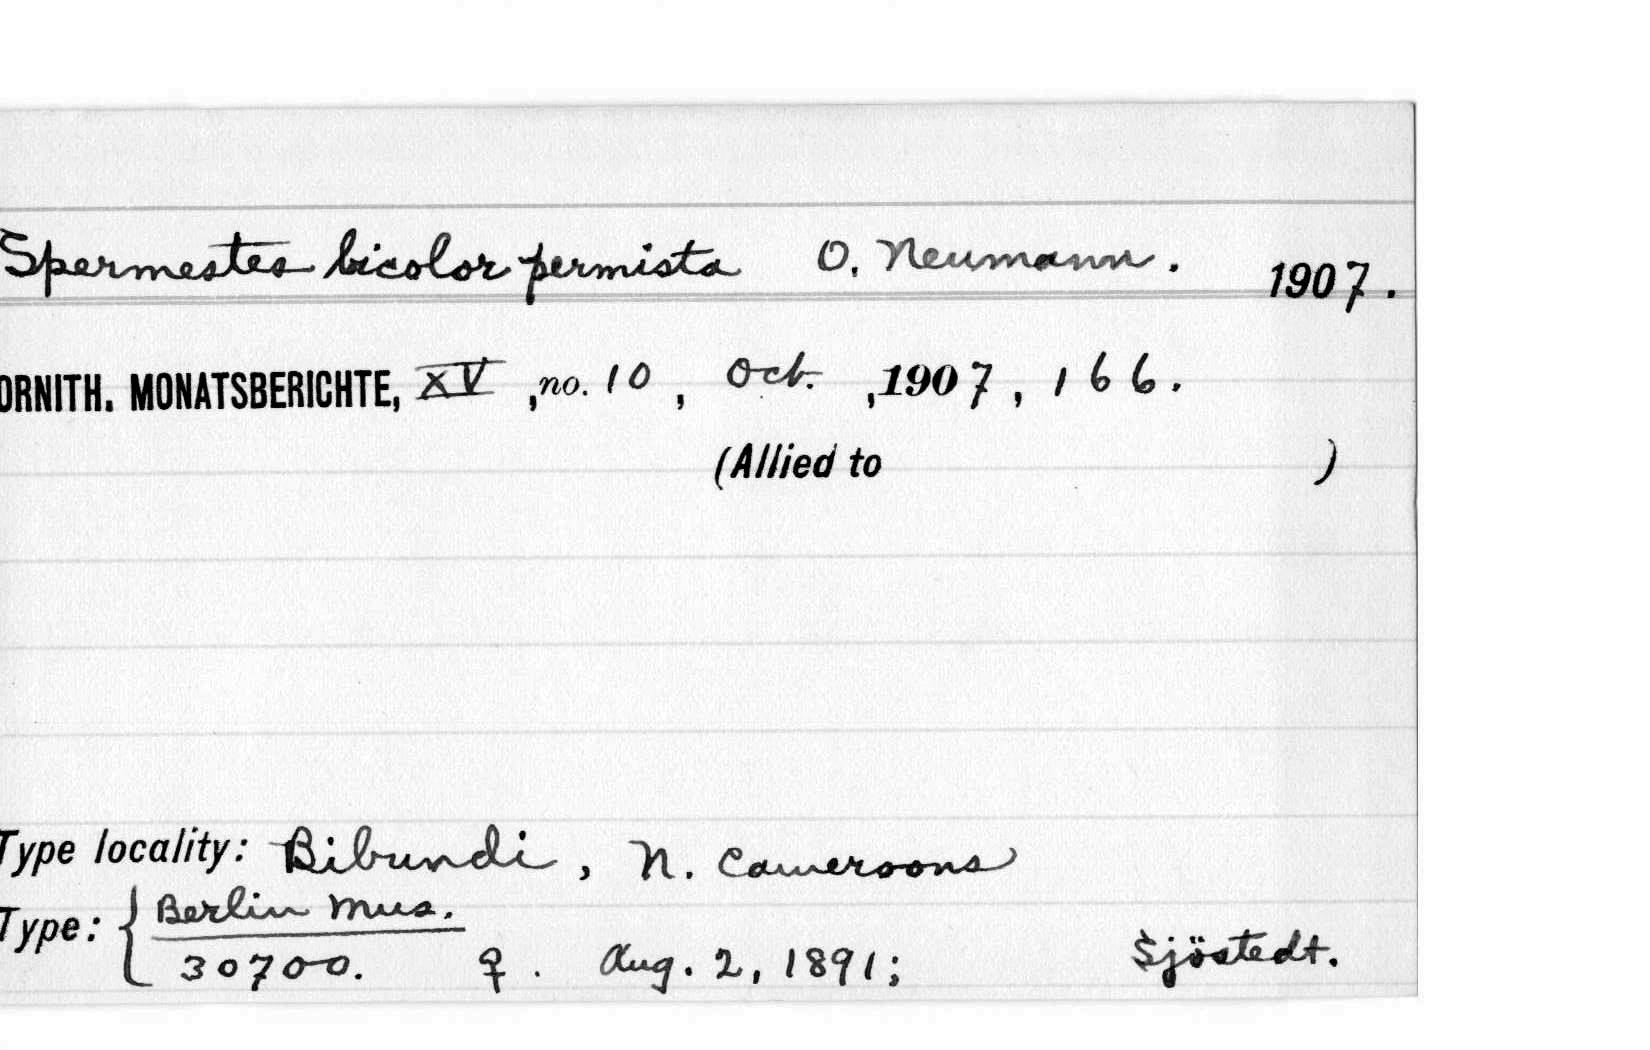 Spermestes bicolor permista O. Neumann. 1907.
ORNITH. MONATSBERICHTE, XV, no. 10, Oct., 1907, 166.
(Allied to )
Type locality: Bibundi, N. Cameroons
Type: { Berlin Mus.
30700. ♀. Aug. 2, 1891; Sjöstedt.